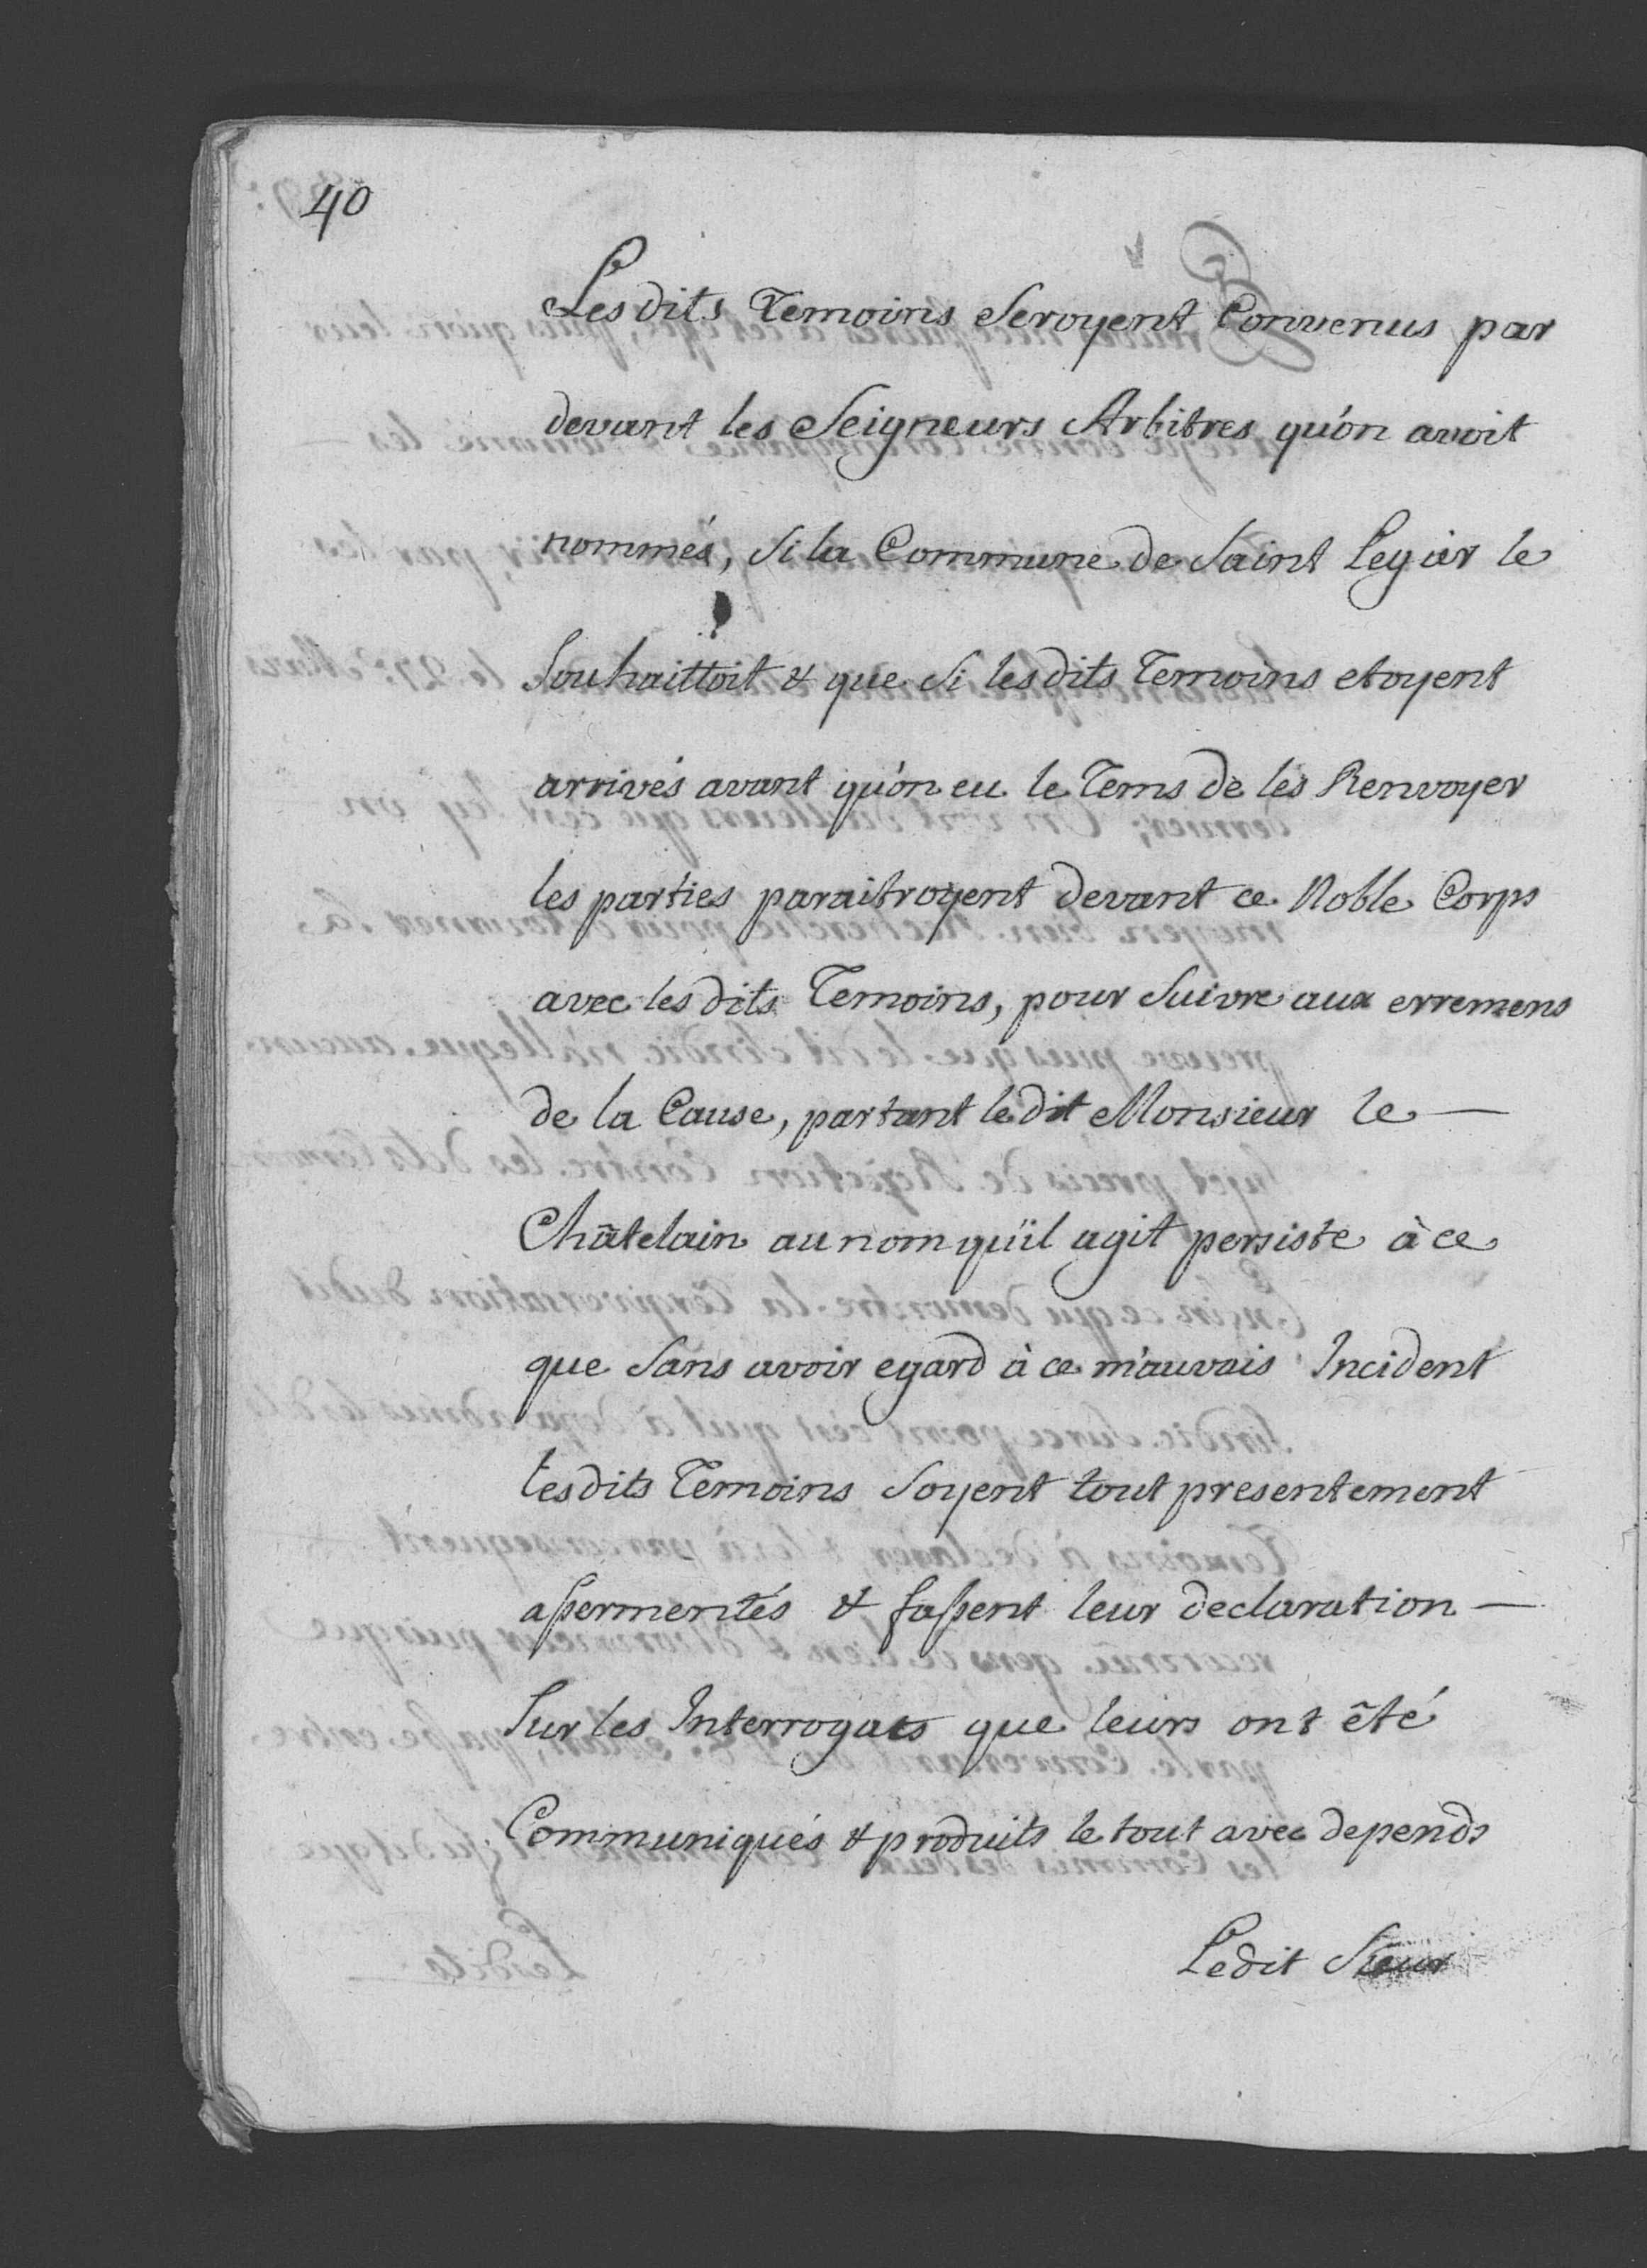 40
Lesdits Temoins Seroyent Convenus par
devant les Seigneurs Arbitres qu'on avoit
nommés, Si la Commune de Saint Legier le
Souhaittoit & que Si lesdits Temoins etoyent
arrivés avant qu'on eu le Tems de les Renvoyer
les parties paraitroyent devant ce Noble Corps
avec les dits Temoins, pour Suivre aux erremens
de la Cause, partant ledit Monsieur le —
Châtelain au nom qu'il agit persiste à ce
que Sans avoir egard à ce mauvais Incident
lesdits Temoins Soyent tout presentement
assermentés & fassent leur declaration —
Sur les Interrogats que leurs ont êté
Communiqués & produits le tout avec depends
Ledit Sieur